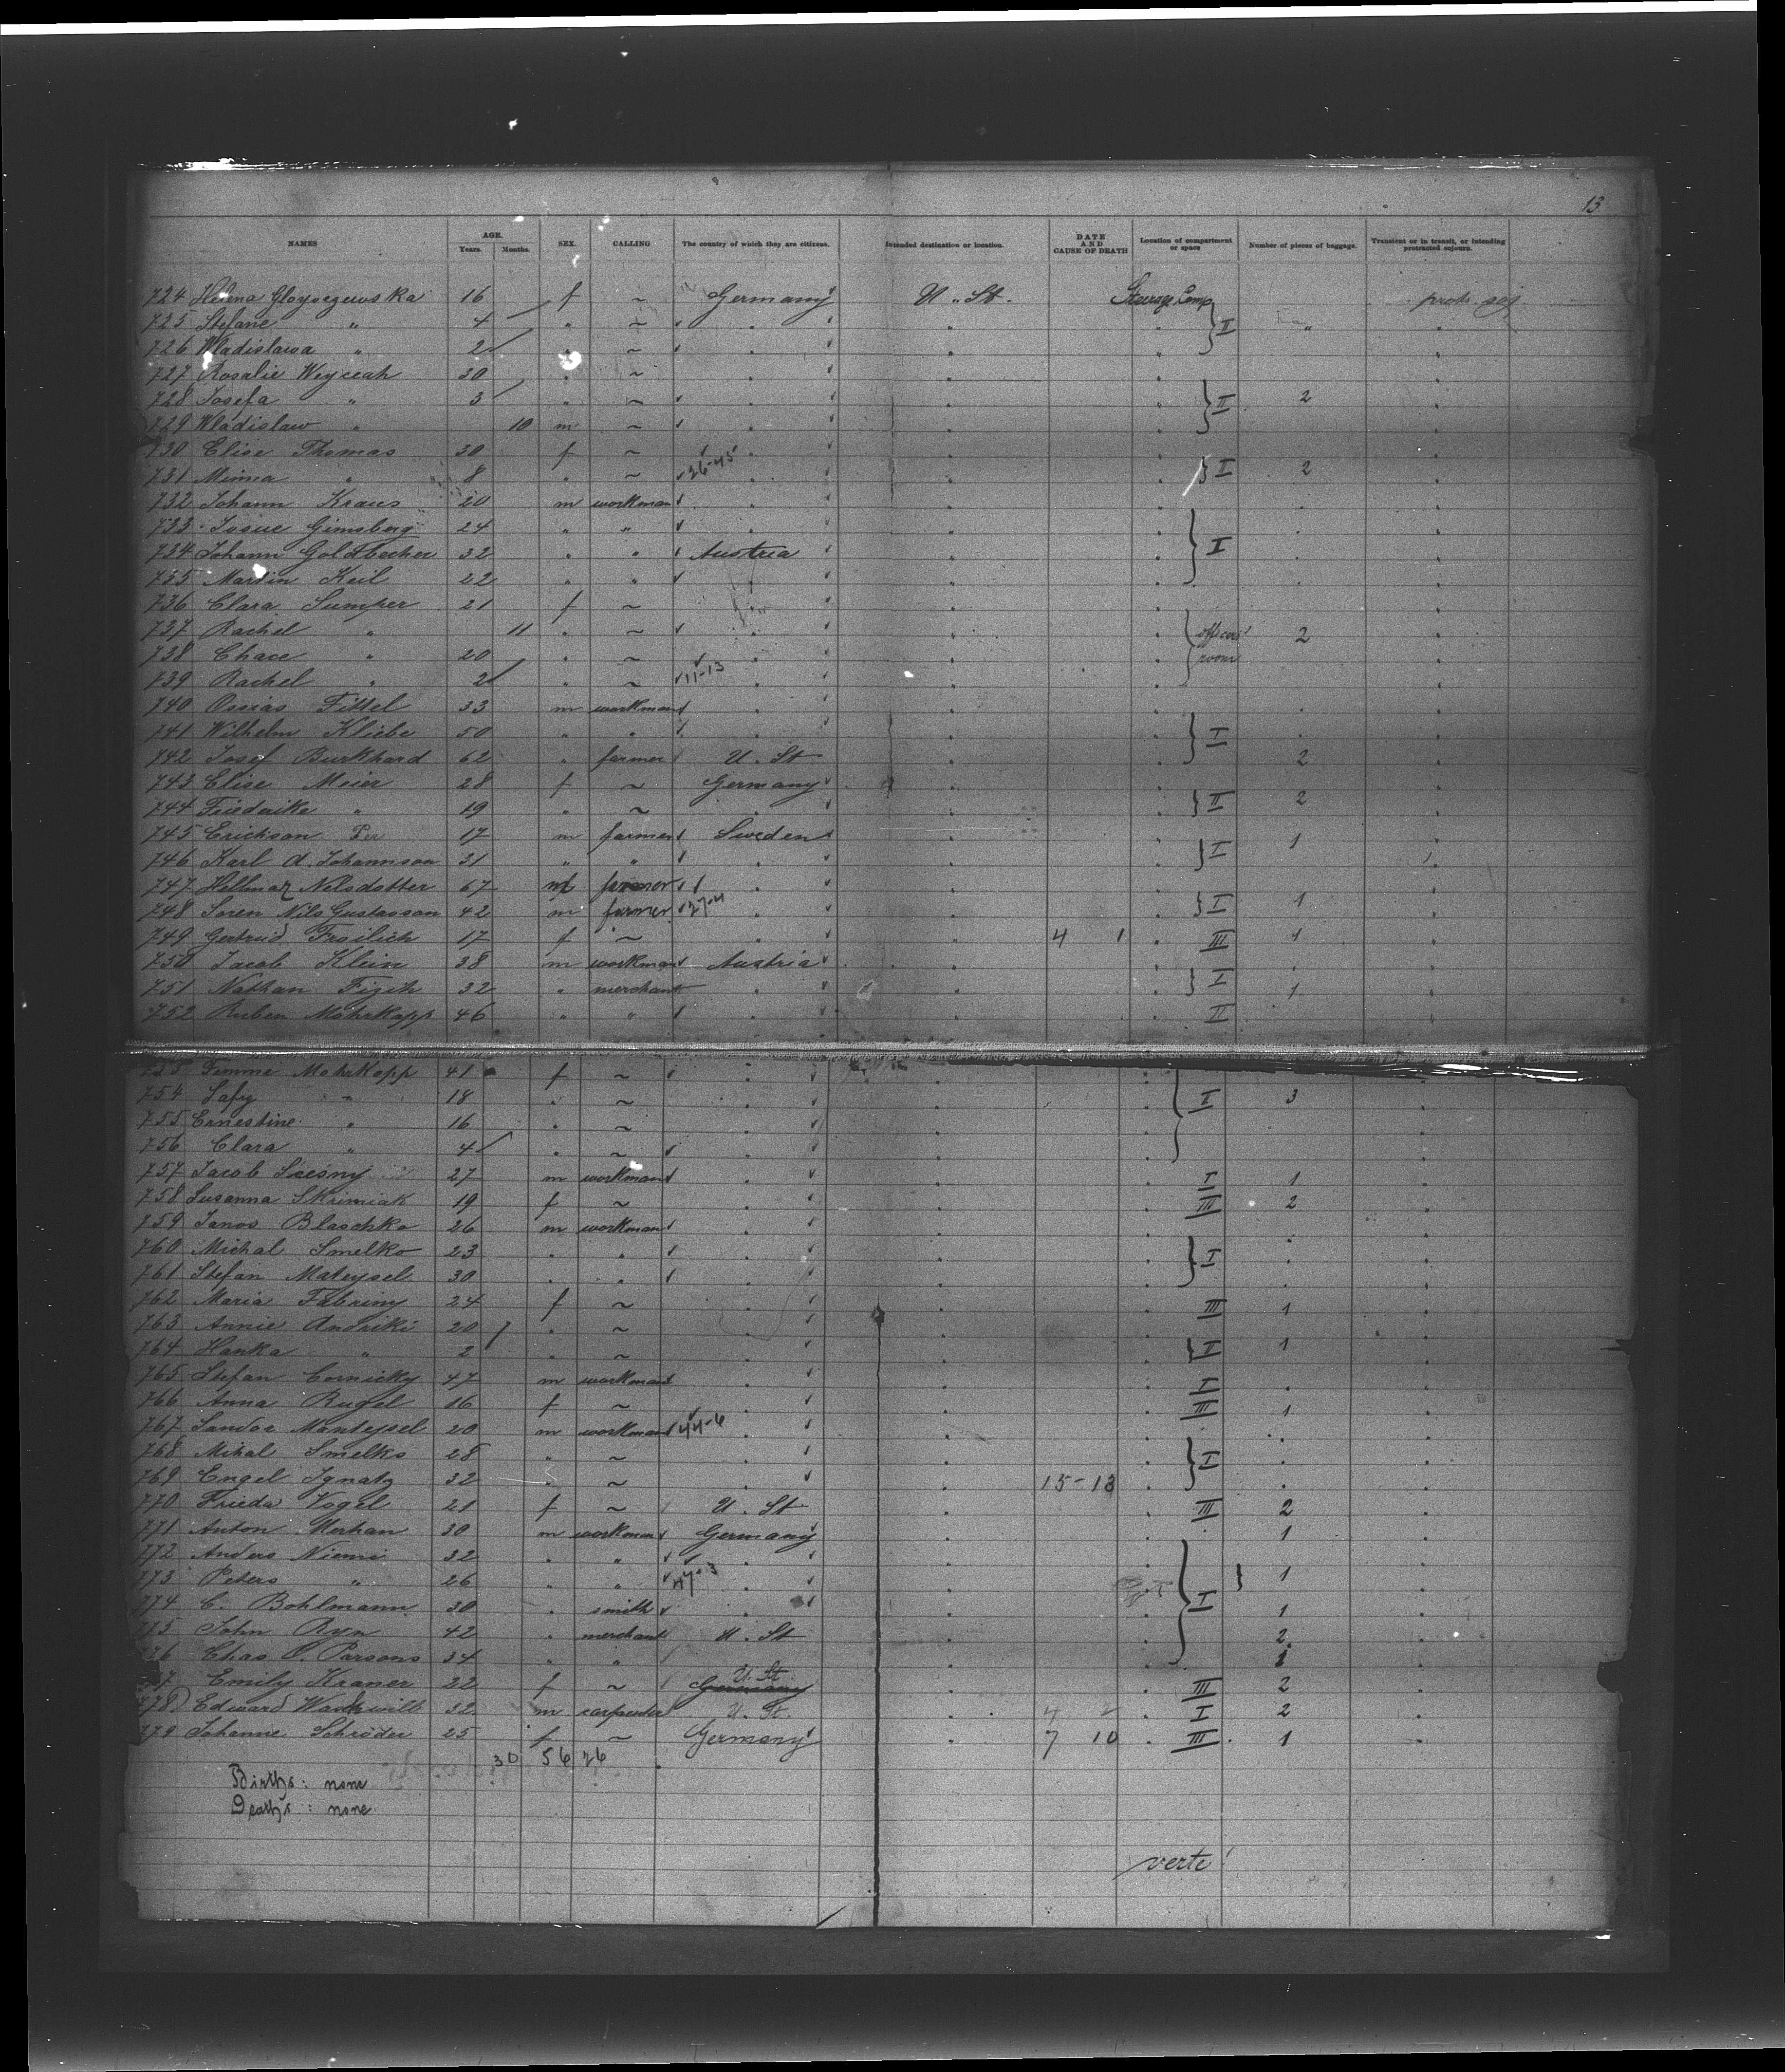 13
NAMES AGE. Years. Months. SEX. CALLING The country of which they are citizens. Intended destination or location. DATE AND CAUSE OF DEATH Location of compartment or space Number of pieces of baggage. Transient or in transit, or intending protracted sojourn.
724 Helena 16 f ~ Germany U. St. Steerage Comp.
725 Stefanie " 4 " ~ II "
726 Wladislawa " 2 " ~
727 Rosalie 30 " ~
728 Josefa " 3 " ~ II 2
729 Wladislaw " 10 m ~
730 Elise Thomas 30 f ~
731 Minna " 8 " ~ 26-45 I 2
732 Johann Kraus 20 m workman
733 Josue Gimsberg 24 " "
734 Johann Goldbecher 32 " " Austria I
735 Martin Keil 22 " "
736 Clara Sumper 21 f ~
737 Rachel " 11 " ~ officers' 2
738 Chace " 20 " ~ room
739 Rachel " 2 " ~ 11-13
740 Ossias Fittel 33 m workman
741 Wilhelm Kliebe 50 " " I
742 Josef Burkhard 62 " farmer U. St 2
743 Elise Meier 28 f ~ Germany
744 Friedrike " 19 " ~ II 2
745 Erickson Per 17 m farmer Sweden 1
746 Karl A. Johannson 31 " " I
747 Nelsdotter 67 f
748 Soren Nils Gustavson 42 m farmer 27-4 I 1
749 Gertrud Froilich 17 f ~ 4 1 III 1
750 Jacob Klein 38 m workman Austria
751 Nathan 32 " merchant I 1
752 Ruben Mohrkopp 46 " " II
753 Femme Mohrkopp 41 f ~
754 " 18 " ~ I 3
755 Ernestine " 16 " ~
756 Clara " 4 " ~
757 Jacob 27 m workman I 1
758 Susanna Skrimiak 19 f ~ III 2
759 Janos Blaschko 26 m workman
760 Michal Smelko 23 " " I
761 Stefan Mateysel 30 " "
762 Maria Fabriny 24 f ~ III 1
763 Annie Andriki 20 " ~
764 Hanka " 2 " ~ I 1
765 Stefan Cornicky 47 m workman I
766 Anna Rugel 16 f ~ III 1
767 Sandor Manteysel 20 m workman 44-6
768 Mihal Smelko 28 " ~ I
769 Engel Ignatz 32 " ~ 15-13
770 Frieda Vogel 21 f ~ U. St III 2
771 Anton Merhan 30 m workman Germany 1
772 Anders Niemi 32 " "
773 Peters " 26 " " 1
774 C. Bohlmann 30 " smith I 1
775 John 42 " merchant U. St 2
776 Chas Parsons 34 " " 1
777 Emily Kramer 22 f ~ Germany U. St III 2
778 Edward 32 m carpenter U. St. 4 2 I 2
779 Johanne Schröder 25 f ~ Germany 7 10 III 1
30 56 26
Births: none
Deaths: none
verte!